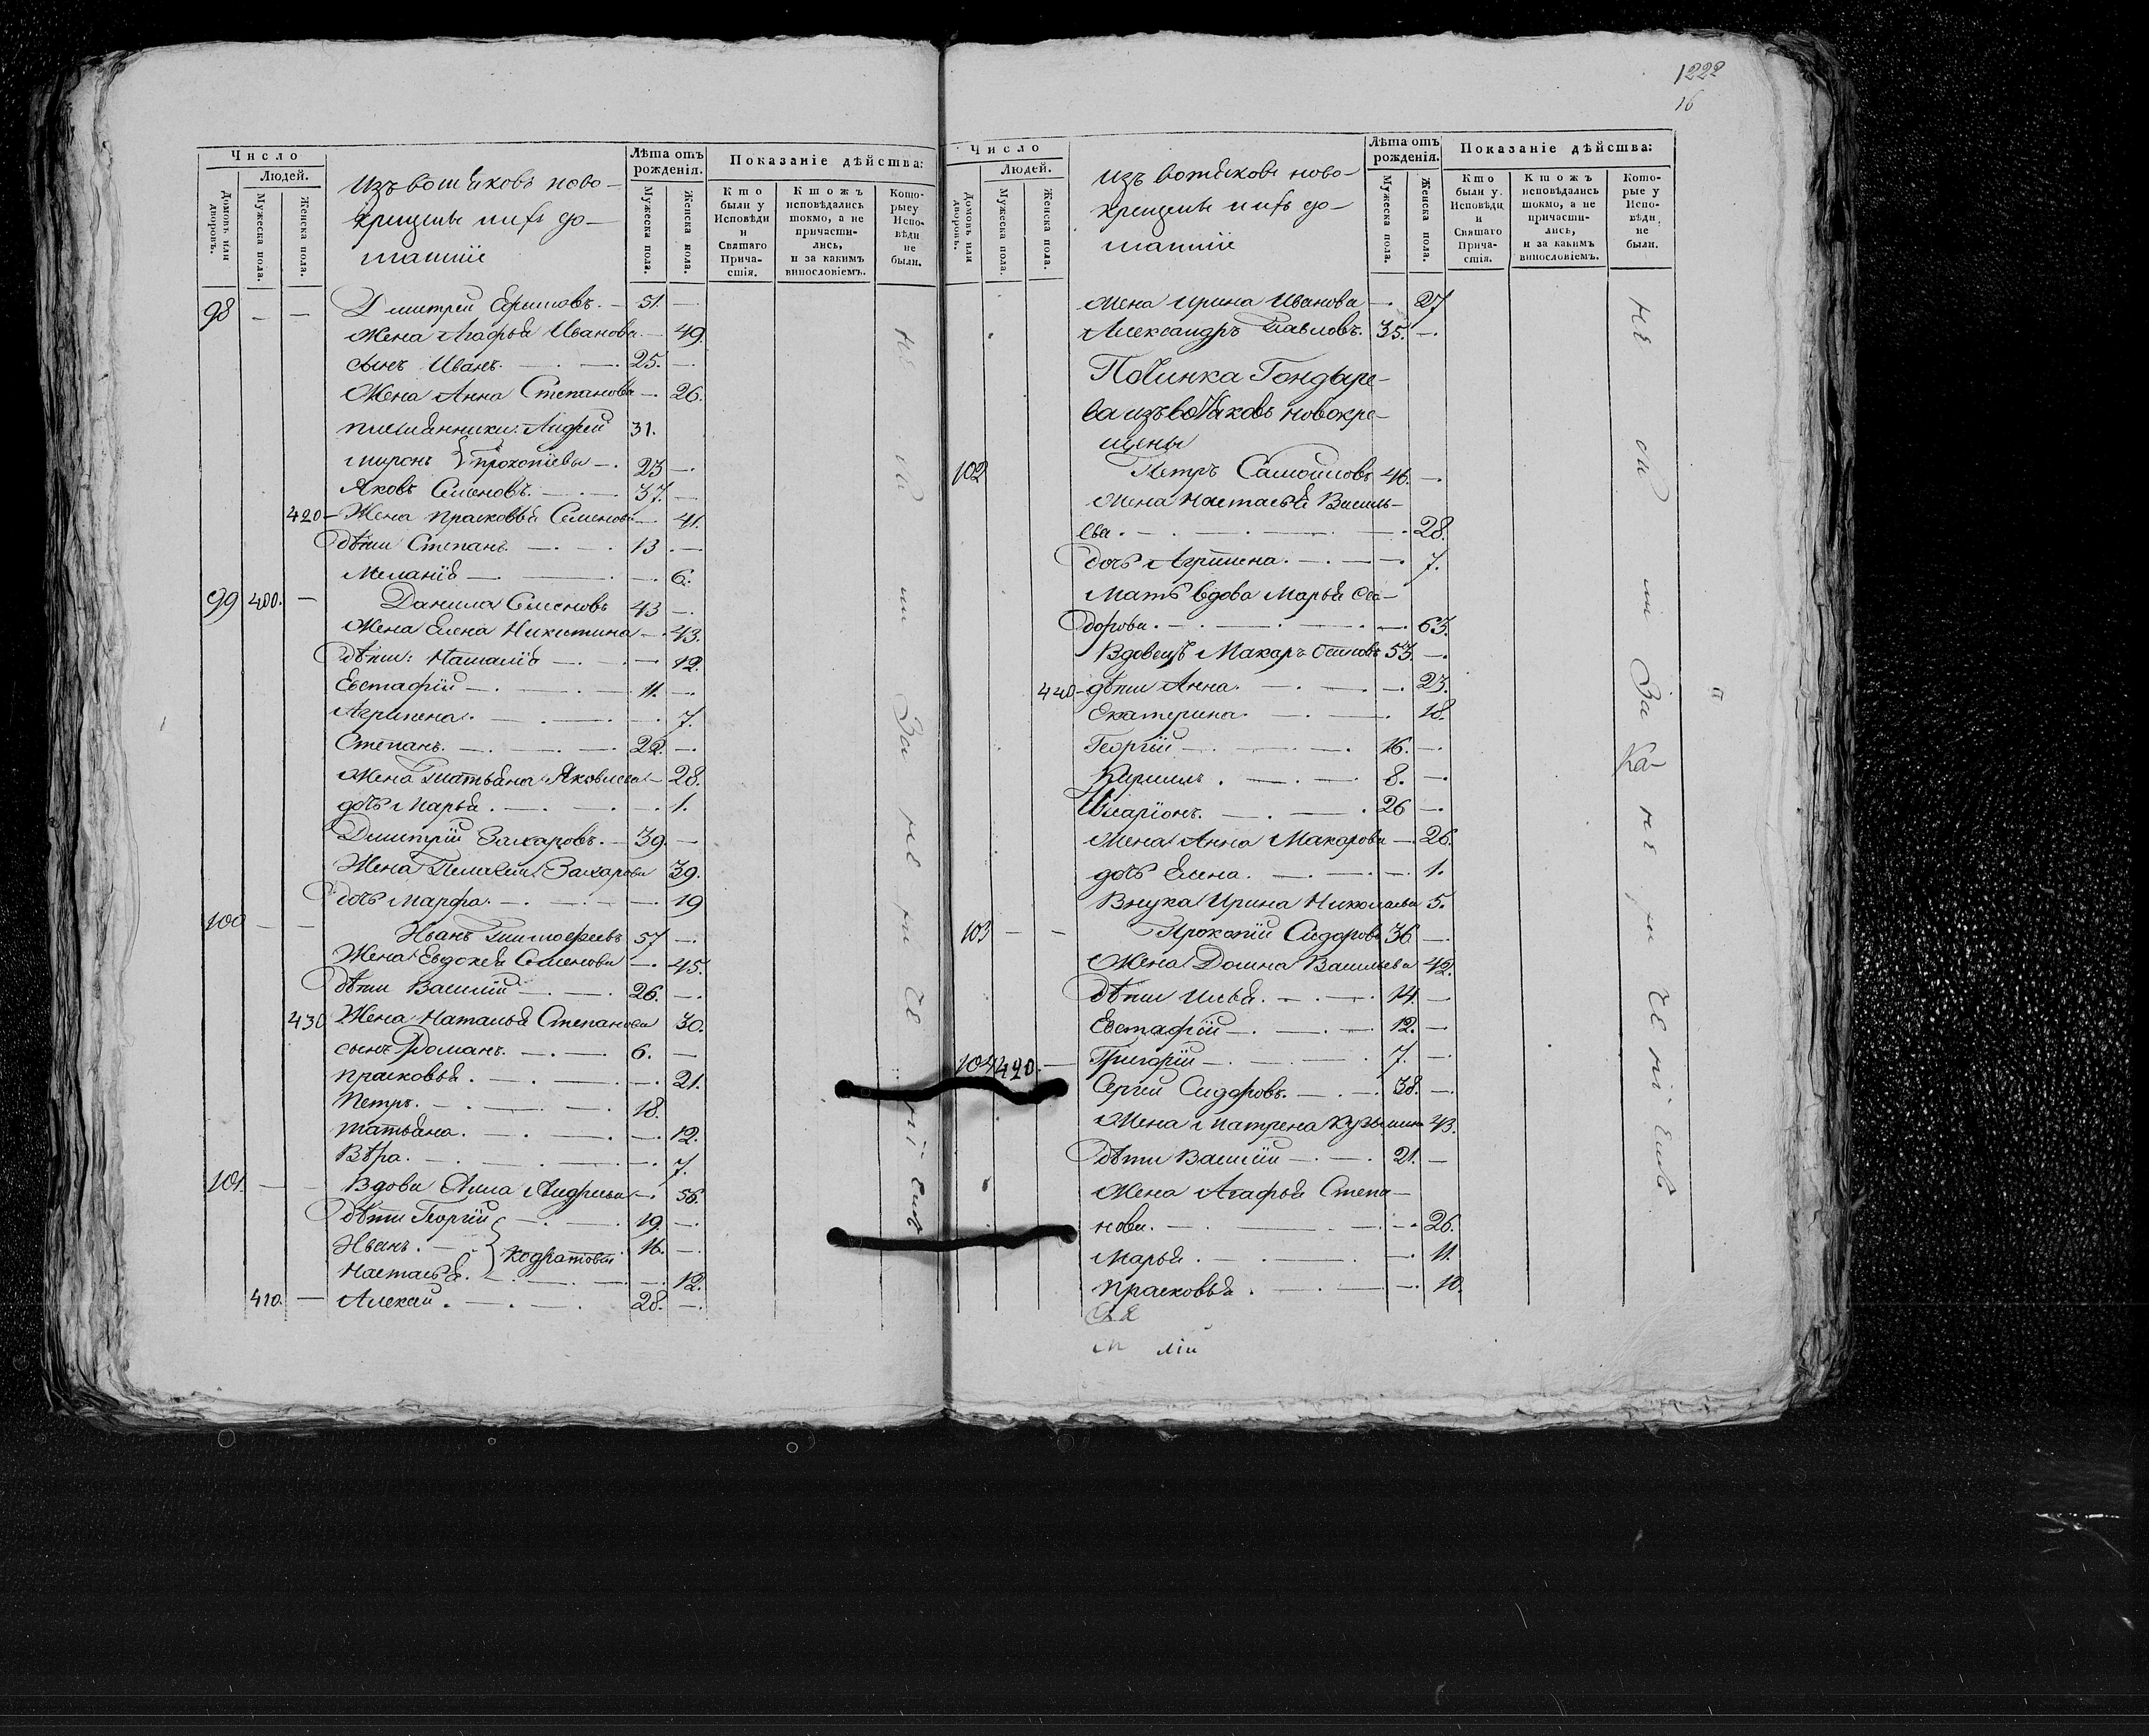 1222
16
Число
Людей.
Домовъ или дворовъ.
Мужеска пола.
Женска пола.
Изъ вотяковъ ново-
крещены и ихъ до-
машніе
Лѣта отъ рожденія.
Мужеска пола.
Женска пола.
Показаніе дѣйства:
Кто были у Исповѣди и Святаго Прича-стія.
Ктожъ исповѣдались токмо, а не причасти-лись, и за какимъ винословіемъ.
Кото-рые у Испо-вѣди не были.
98 — — Дмитрей 51. —
Жена Агафья Иванова — 49.
сынъ Иванъ. — 25. —
Жена Анна Степанова — 26.
племянники: Андрей 31.
Миронъ Прокопіевы — 23 —
Яковъ Семеновъ. — 37. —
420 — Жена Прасковья Семенова — 41.
дѣти Степанъ — 13 —
Меланія — — 6.
99 400. — Данила Семеновъ 43 —
Жена Елена Никитина — 43.
дѣти: Наталія — — 12.
Евстафій — 11. —
Агрипена. — — 7.
Степанъ. — 22. —
Жена Татьяна Яковлева — 28.
дочь Марья. — — 1.
Дмитрій Захаровъ. — 39. —
Жена Пелагея Захарова 39.
дочь Марфа. — — 19
100 — — Иванъ Тимофеевъ 57 —
Жена Евдокея Семенова — 45.
дѣти Василій — 26. —
430 Жена Наталья Степанова 30.
сынъ Романъ. — 6. —
Прасковья. — — 21.
Петръ. — 18.
Татьяна. — — 12.
Вѣра. — — 7.
101. — — Вдова Анна Андреева — 56.
дѣти Георгій — 19. —
Иванъ. — Кодратовы 16. —
Настасья. — — 12.
410. — Алексей. — 28. —
Число
Людей.
Домовъ или дворовъ.
Мужеска пола.
Женска пола.
Изъ вотяковъ ново-
крещены и ихъ до-
машніе
Лѣта отъ рожденія.
Мужеска пола.
Женска пола.
Показаніе дѣйства:
Кто были у Исповѣди и Святаго Прича-стія.
Ктожъ исповѣдались токмо, а не причасти-лись, и за какимъ винословіемъ.
Кото-рые у Испо-вѣди не были.
Жена Ирина Иванова — 27
Александръ Павловъ. 35. —
Починка Гондыре-
ва изъ вотяковъ новокре-
щены
102 Петръ Самойловъ 46. —
Жена Настасья Василь-
ева. — — 28.
дочь Агрипена. — — 7.
Мать вдова Марья Сѣо-
дорова. — — 63.
Вдовецъ Макаръ 53. —
440 — дѣти Анна. — — 23.
Екатерина. — 18.
Георгій — 16. —
Кирилъ. — 8. —
Иларіонъ. — 26 —
Жена Анна Макарова — 26.
дочь Елена. — — 1.
Внука Ирина Николаева 5.
103 — — Прокопій Сидоровъ 36 —
Жена Домна Васильева 42.
дѣти Илья. — 14. —
Евстафій — 12. —
104 420. — Григорій — 7. —
Сергей Сидоровъ. — 38. —
Жена Матрена Кузьмина 43.
дѣти Василій — 21. —
Жена Агафья Степа-
нова. — — 26.
Марья — — 11.
Прасковья. — — 10.